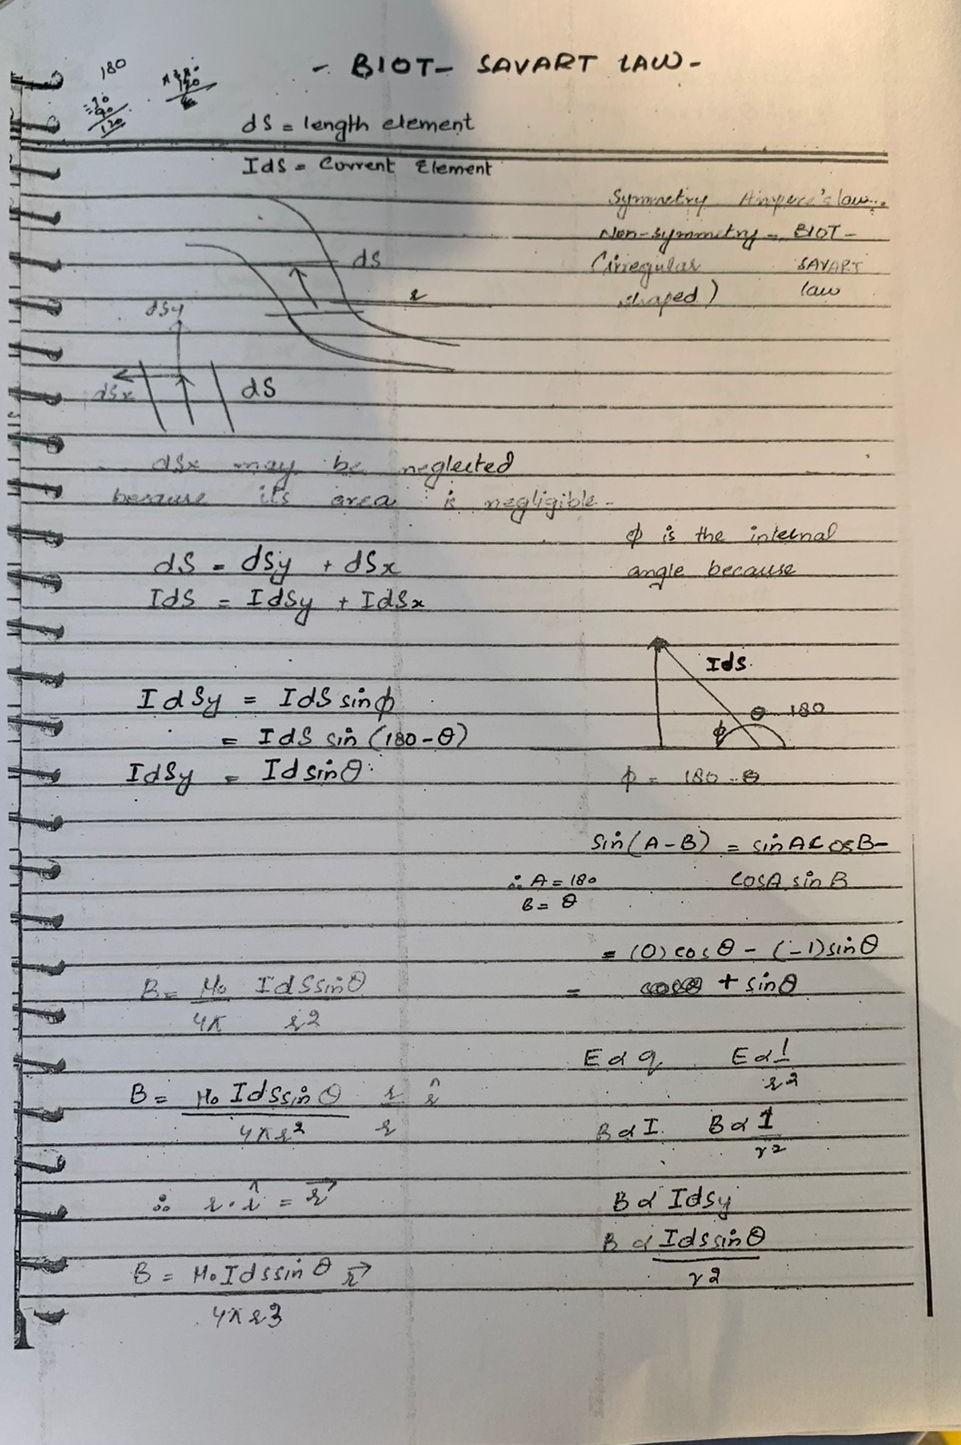 180
- BIOT- SAVART LAW -
dS = length element
IdS = Current Element
Symmetry Ampere's law..
Non-symmetry - BIOT -
(irregular SAVART
shaped) law
dS
r
dSy
dSx
dS
dSx may be neglected
because its area is negligible -
ϕ is the internal
angle because
dS = dSy + dSx
IdS = IdSy + IdSx
IdS
θ 180
ϕ
ϕ = 180 - θ
IdSy = IdS sinϕ
= IdS sin (180-θ)
IdSy = Id sinθ
sin(A-B) = sinA cosB-
cosA sinB
∴ A = 180
B = θ
= (0) cosθ - (-1)sinθ
= + sinθ
B = μ₀ IdSsinθ
4π r2
E α q E α 1
r2
B = μ₀ IdSsinθ r r̂
4πr2 r
B α I B α 1
r2
∴ r·r̂ = r⃗
B α Idsy
B α Idssinθ
r2
B = μ₀ Idssinθ r⃗
4πr3